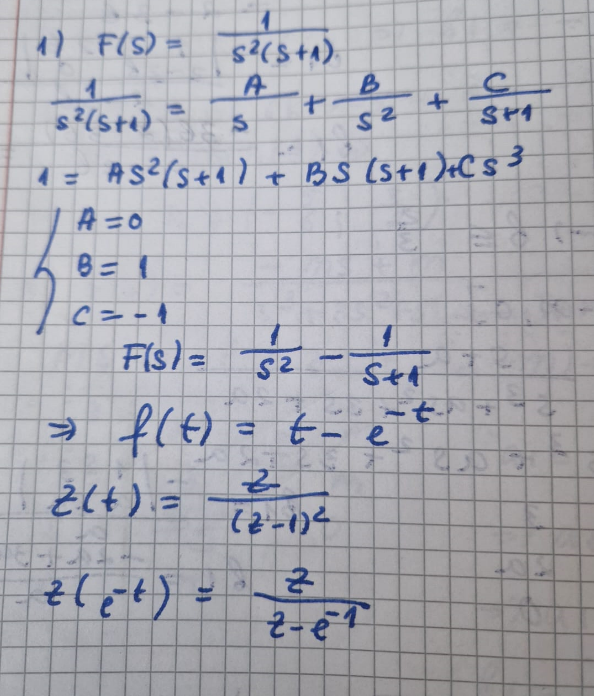 1) F(s) = 1/(s²(s+1))
1/(s²(s+1)) = A/s + B/s² + C/(s+1)
1 = As²(s+1) + Bs(s+1)+Cs³
{ A = 0
B = 1
C = -1
F(s) = 1/s² - 1/(s+1)
⇒ f(t) = t - e^-t
z(t) = z/(z-1)²
z(e^-t) = z/(z-e^-1)